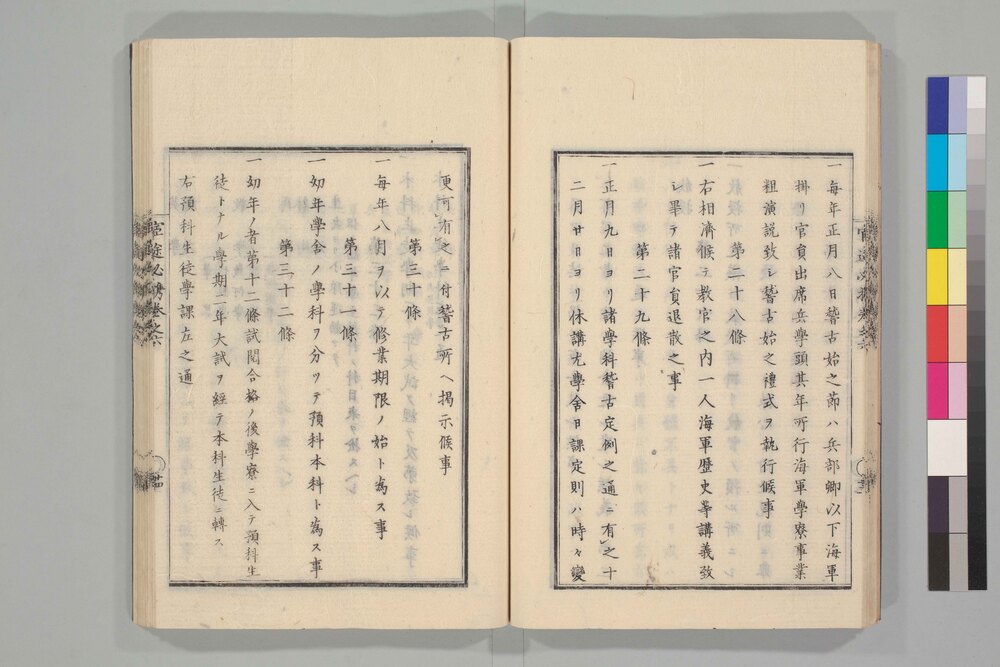 一每年正月八日稽古始之節ハ兵部卿以下海軍
掛リ官員出席兵學頭其年所行海軍學寮事業
粗演説致シ稽古始之禮式ヲ執行候事
第二十八條
一右相濟候テ教官之内一人海軍歴史等講義致
シ畢テ諸官員退散之事
第二十九條
一正月九日ヨリ諸學科稽古定例之通ニ有之十
二月廿日ヨリ休講尤學舎日課定則ハ時々變
更可有之ニ付稽古所ヘ揭示候事
第三十條
一每年八月ヲ以テ修業期限ノ始ト為ス事
第三十一條
一幼年學舎ノ學科ヲ分ツテ預科本科ト為ス事
第三十二條
一幼年ノ者第十二條試閲合格ノ後學寮ニ入テ預科生
徒トナル學期二年大試ヲ經テ本科生徒ニ轉ス
右預科生徒學課左之通